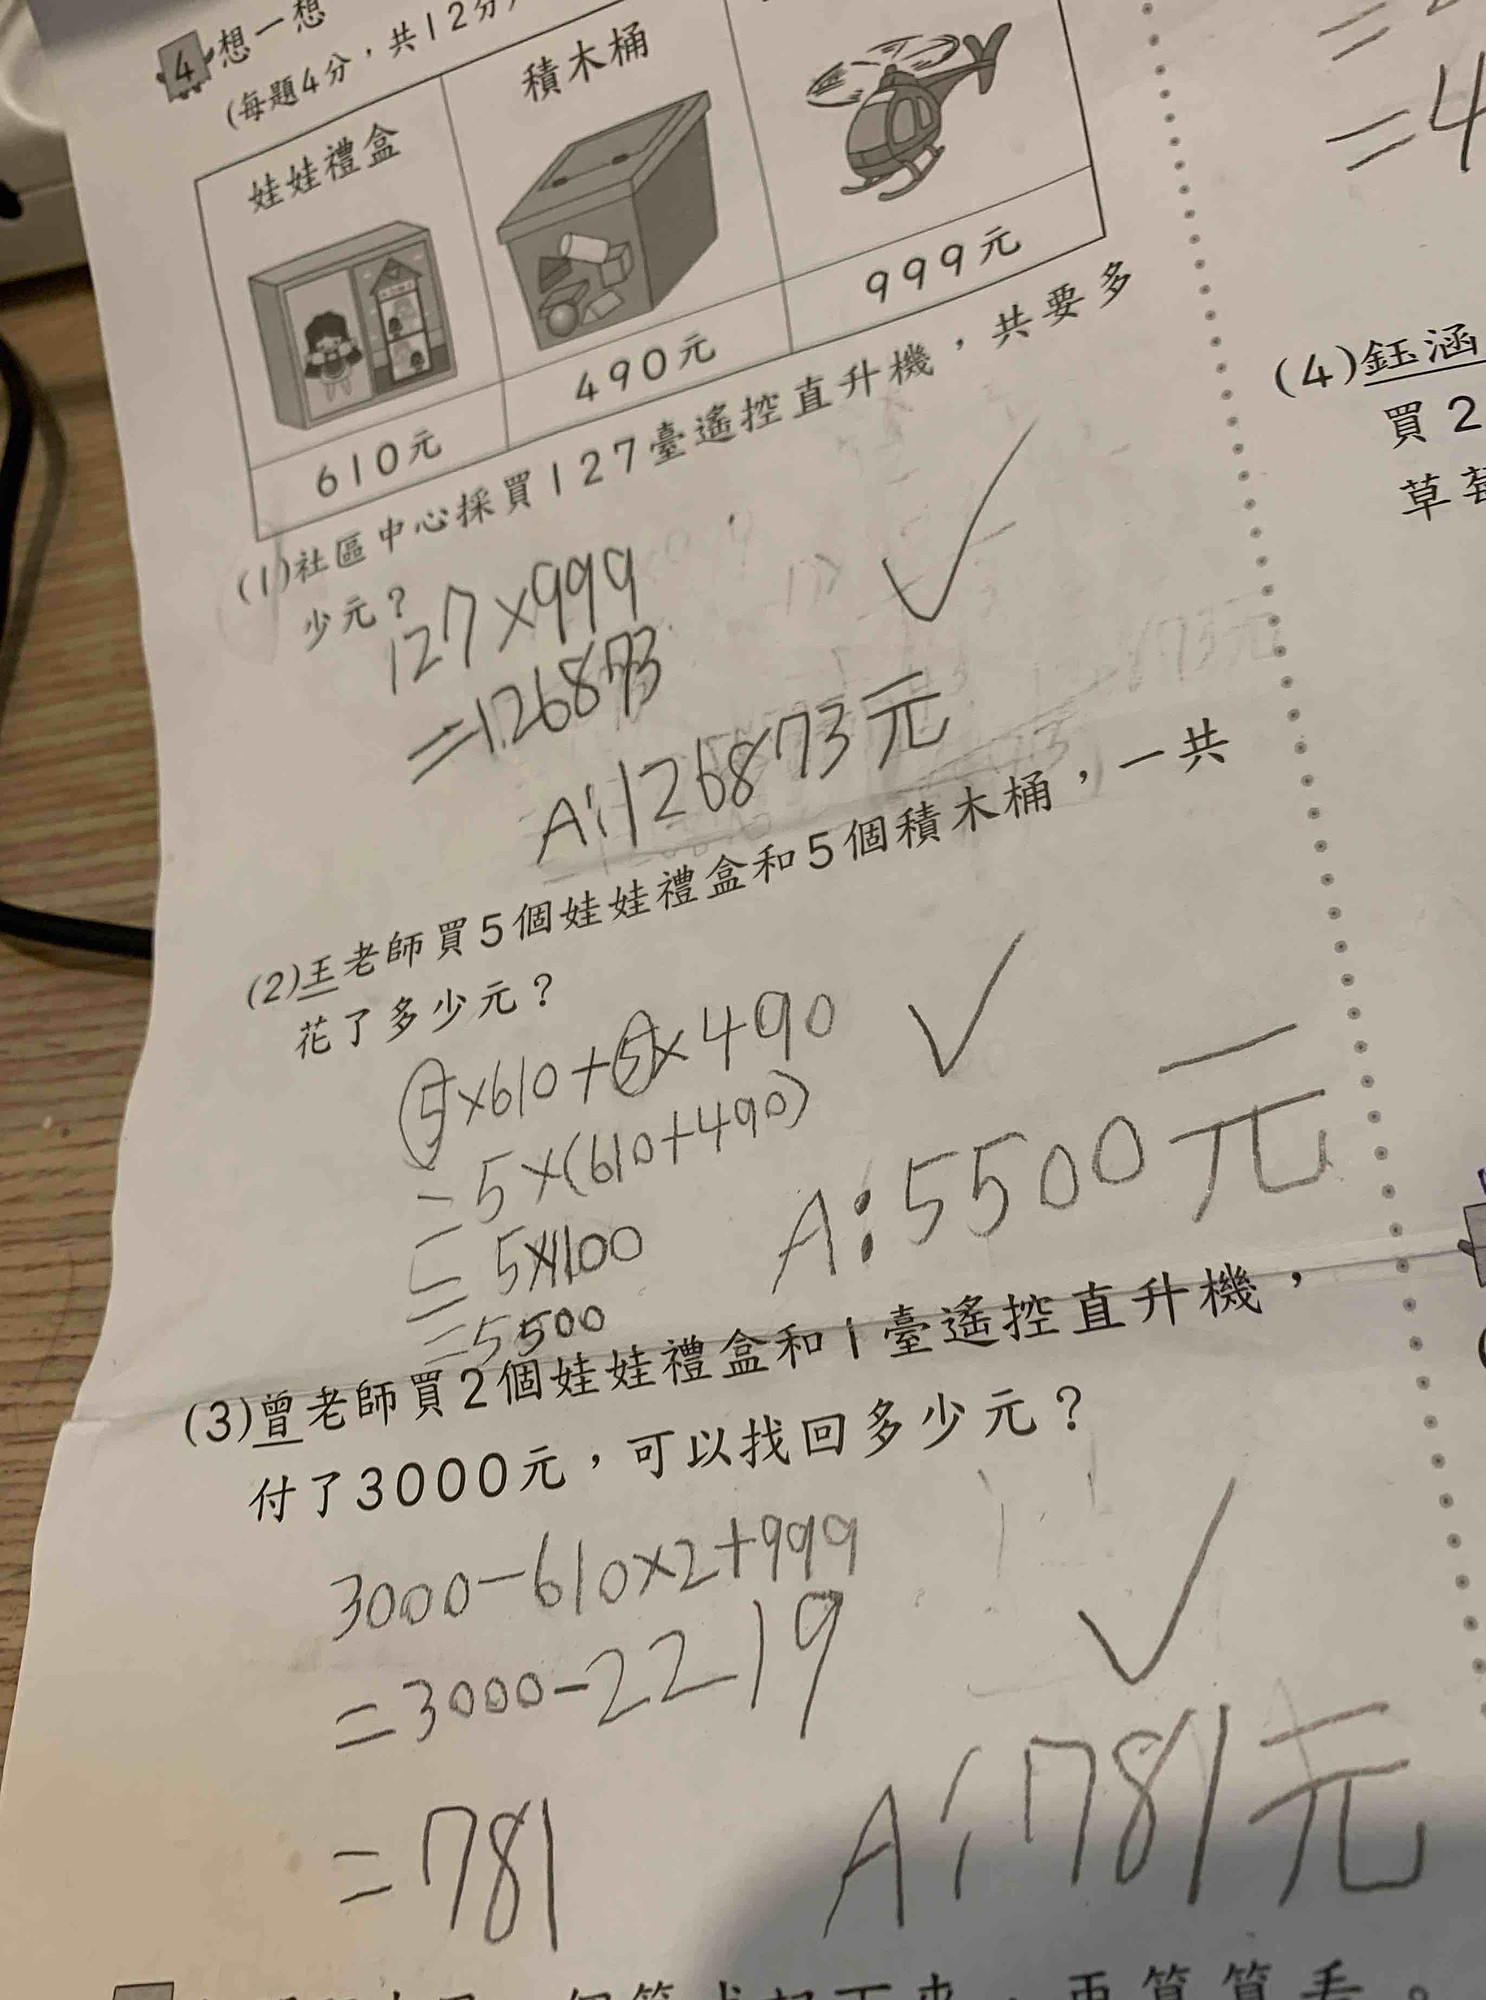 4 想一想
(每題4分，共12分)
娃娃禮盒
積木桶
610元
490元
999元
(1)社區中心採買127臺遙控直升機，共要多
少元？
127×999
=126873
A:126873元
(2)王老師買5個娃娃禮盒和5個積木桶，一共
花了多少元？
5×610+5×490
=5×(610+490)
=5×1100
=5500
A:5500元
(3)曾老師買2個娃娃禮盒和1臺遙控直升機，
付了3000元，可以找回多少元？
3000-610×2+999
=3000-2219
=781
A:781元
=4
(4)鈺涵
買2